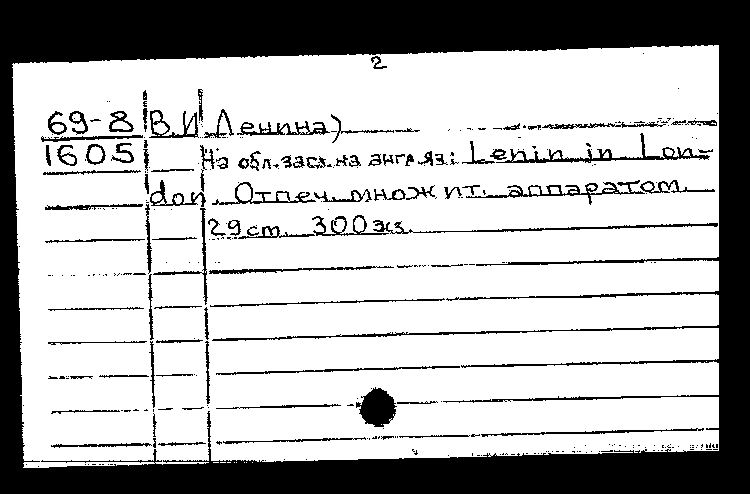 2
69-8 В.И Ленина)
1605 На обл. загл. на англ. яз: Lenin in Lon-
don. Отпеч. множит. аппаратом.
29 cm. 300 экз.